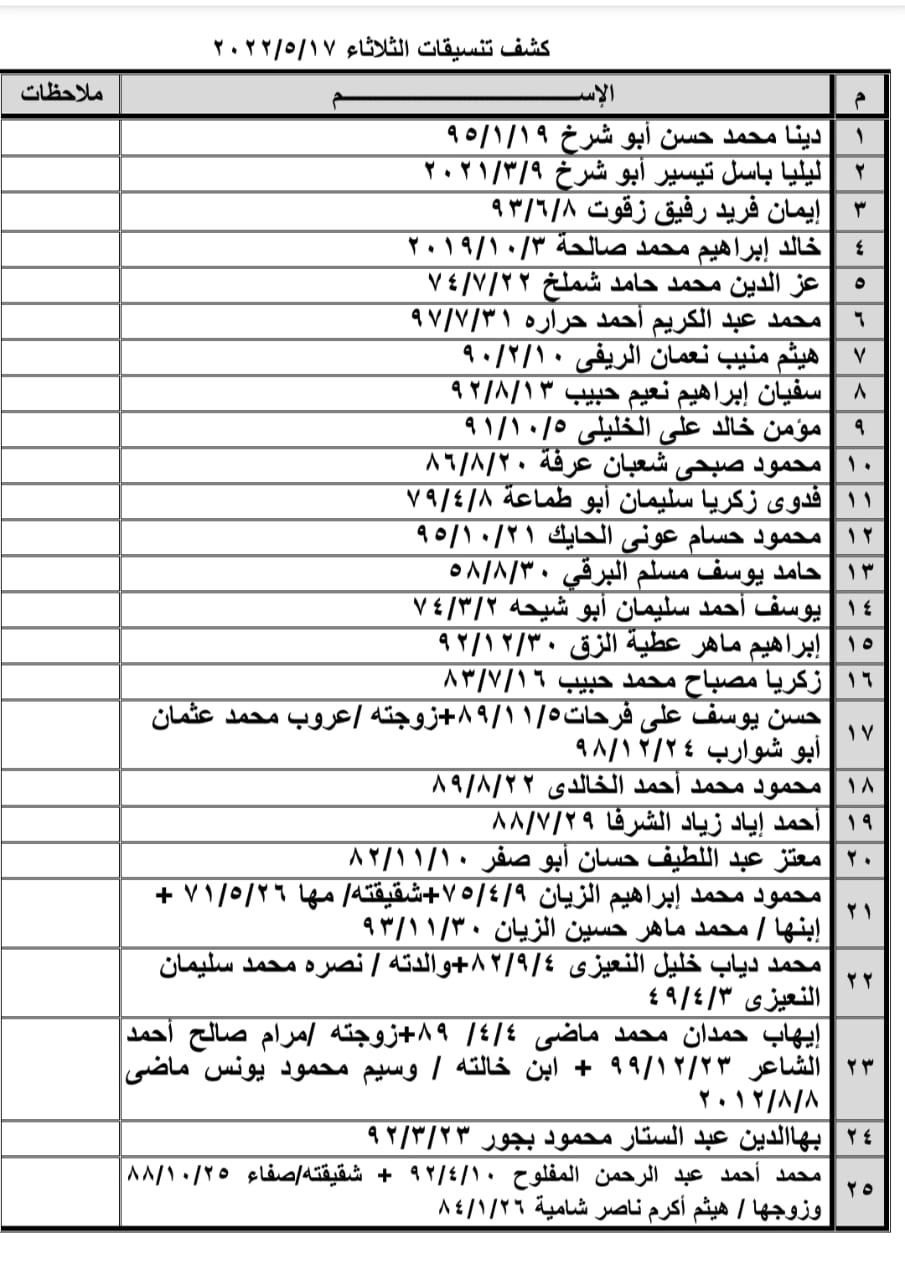 كشف تنسيقات الثلاثاء ٢٠٢٢/٥/١٧
م الإســـــــــــــــــــــم ملاحظات
١ دينا محمد حسن أبو شرخ ٩٥/١/١٩
٢ ليليا باسل تيسير أبو شرخ ٢٠٢١/٣/٩
٣ إيمان فريد رفيق زقوت ٩٣/٦/٨
٤ خالد إبراهيم محمد صالحة ٢٠١٩/١٠/٣
٥ عز الدين محمد حامد شملخ ٧٤/٧/٢٢
٦ محمد عبد الكريم أحمد حراره ٩٧/٧/٣١
٧ هيثم منيب نعمان الريفى ٩٠/٢/١٠
٨ سفيان إبراهيم نعيم حبيب ٩٢/٨/١٣
٩ مؤمن خالد على الخليلى ٩١/١٠/٥
١٠ محمود صبحى شعبان عرفة ٨٦/٨/٢٠
١١ فدوى زكريا سليمان أبو طماعة ٧٩/٤/٨
١٢ محمود حسام عونى الحايك ٩٥/١٠/٢١
١٣ حامد يوسف مسلم البرقي ٥٨/٨/٣٠
١٤ يوسف أحمد سليمان أبو شيحه ٧٤/٣/٢
١٥ إبراهيم ماهر عطية الزق ٩٢/١٢/٣٠
١٦ زكريا مصباح محمد حبيب ٨٣/٧/١٦
١٧ حسن يوسف على فرحات٨٩/١١/٥+زوجته /عروب محمد عثمان
أبو شوارب ٩٨/١٢/٢٤
١٨ محمود محمد أحمد الخالدى ٨٩/٨/٢٢
١٩ أحمد إياد زياد الشرفا ٨٨/٧/٢٩
٢٠ معتز عبد اللطيف حسان أبو صفر ٨٢/١١/١٠
٢١ محمود محمد إبراهيم الزيان ٧٥/٤/٩+شقيقته/ مها ٧١/٥/٢٦ +
إبنها / محمد ماهر حسين الزيان ٩٣/١١/٣٠
٢٢ محمد دياب خليل النعيزى ٨٢/٩/٤+والدته / نصره محمد سليمان
النعيزى ٤٩/٤/٣
٢٣ إيهاب حمدان محمد ماضى ٤/٤/ ٨٩+زوجته /مرام صالح أحمد
الشاعر ٩٩/١٢/٢٣ + ابن خالته / وسيم محمود يونس ماضى
٢٠١٢/٨/٨
٢٤ بهاالدين عبد الستار محمود بجور ٩٢/٣/٢٣
٢٥ محمد أحمد عبد الرحمن المفلوح ٩٢/٤/١٠ + شقيقته/صفاء ٨٨/١٠/٢٥
وزوجها / هيثم أكرم ناصر شامية ٨٤/١/٢٦